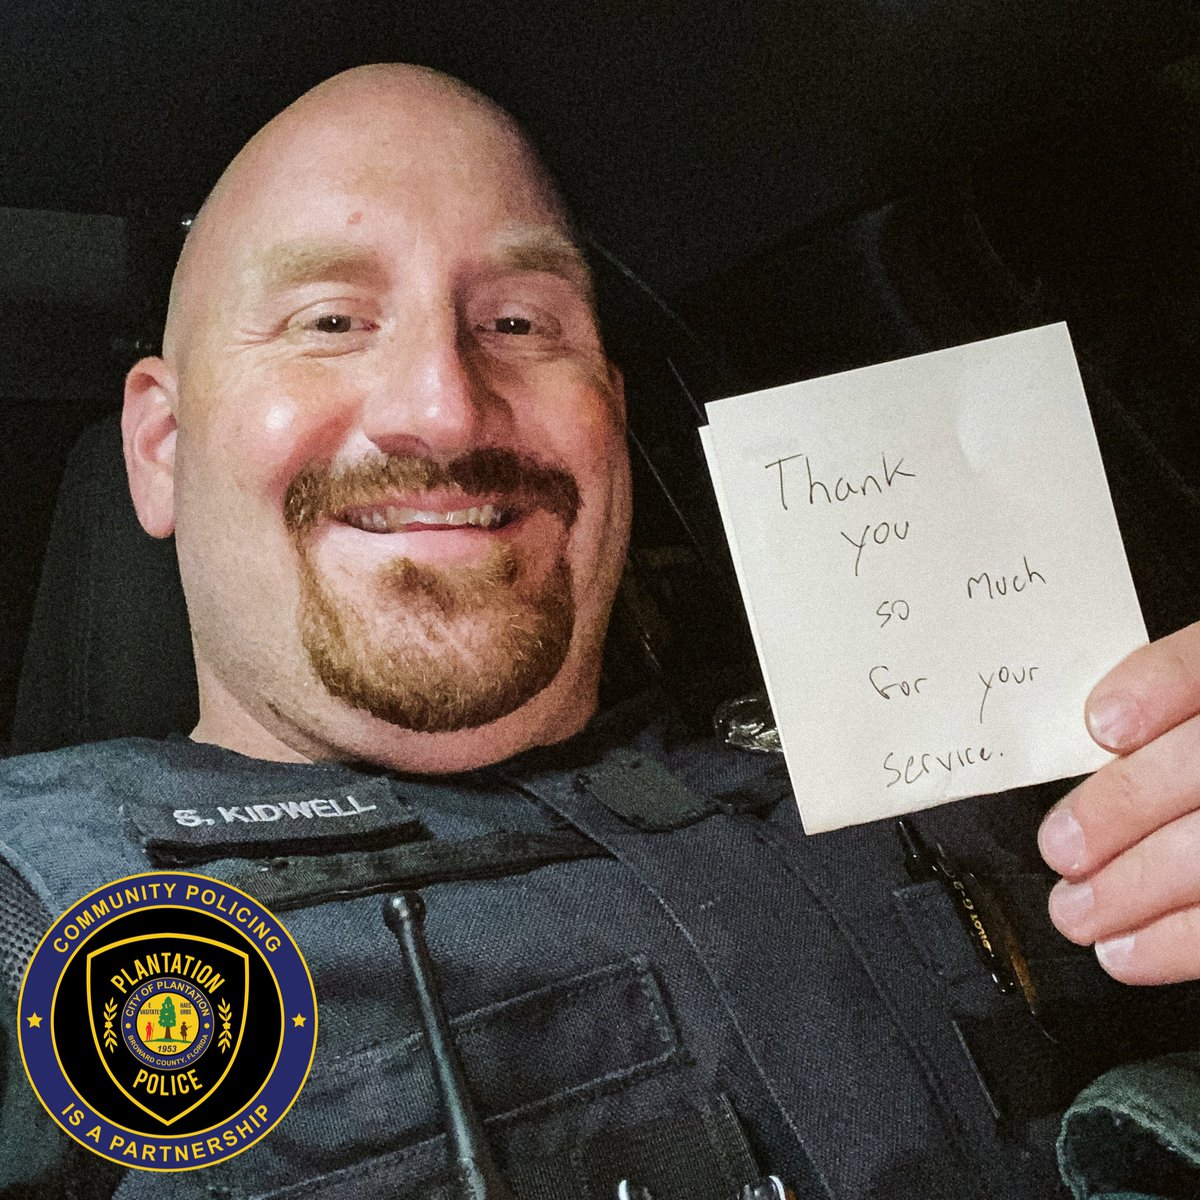 Thank
you
so much
for your
service.
S. KIDWELL
PILOT G2
COMMUNITY POLICING
PLANTATION
CITY OF PLANTATION
E HAEC
VASITATE URBS
1953
BROWARD COUNTY, FLORIDA
POLICE
IS A PARTNERSHIP